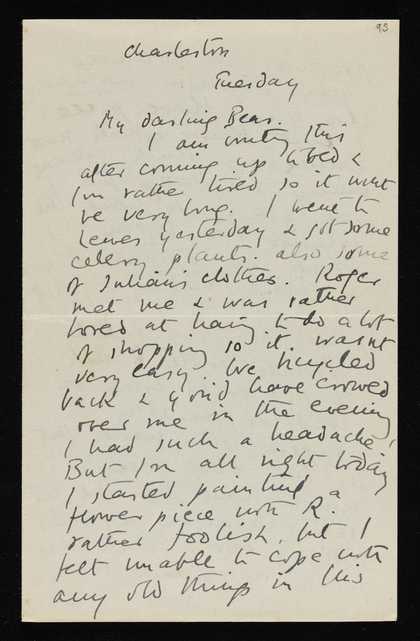 93
Charleston
Tuesday
My darling Bear.
I am writing this
after coming up to bed &
I'm rather tired so it wont
be very long. I went to
Lewes yesterday & got some
celery plants. also some
of Julian's clothes. Roger
met me & was rather
bored at having to do a lot
of shopping so it wasnt
very easy. We bicycled
back & you'd have crowed
over me in the evening
I had such a headache!
But I'm all right today
I started painting a
flower piece with R.
rather foolish, but I
felt unable to cope with
any old things in his